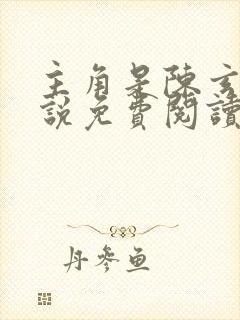 主角是陳玄
說免費閱讀
丹參魚